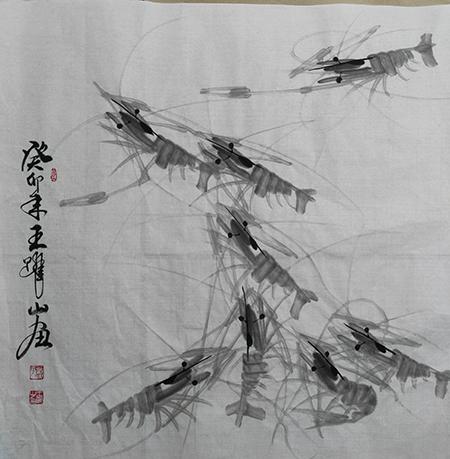 癸卯年王耀山画